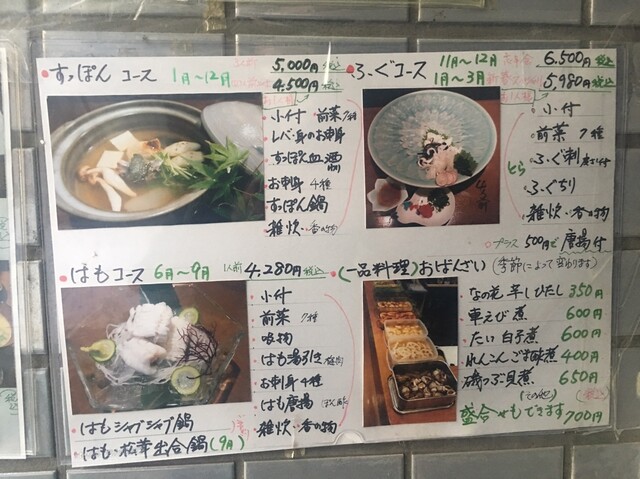 すっぽん コース 1月〜12月
5,000円税込
4,500円税込
・小付 前菜 7種
・レバ・身のお刺身
・すっぽん血酒
・お刺身 4種
・すっぽん鍋
・雑炊・香の物
ふぐコース 11月〜12月
1月〜3月
6,500円税込
5,980円税込
・小付
・前菜 7種
・ふぐ刺
・ふぐちり
・雑炊・香の物
とら
プラス 500円で 唐揚付
はもコース 6月〜9月 1人前 4,280円税込
・小付
・前菜 7種
・吸物
・はも湯引き
・お刺身 4種
・はも唐揚
・雑炊・香の物
はもシャブシャブ鍋
はも・松茸出合鍋(9月)
(一品料理) おばんざい (季節によって変わります)
・なの花 辛しひたし 350円
・車えび煮 600円
・たい白子煮 600円
・れんこんごま味煮 400円
・磯つぶ貝煮 650円
(その他)
盛合せもできます 700円